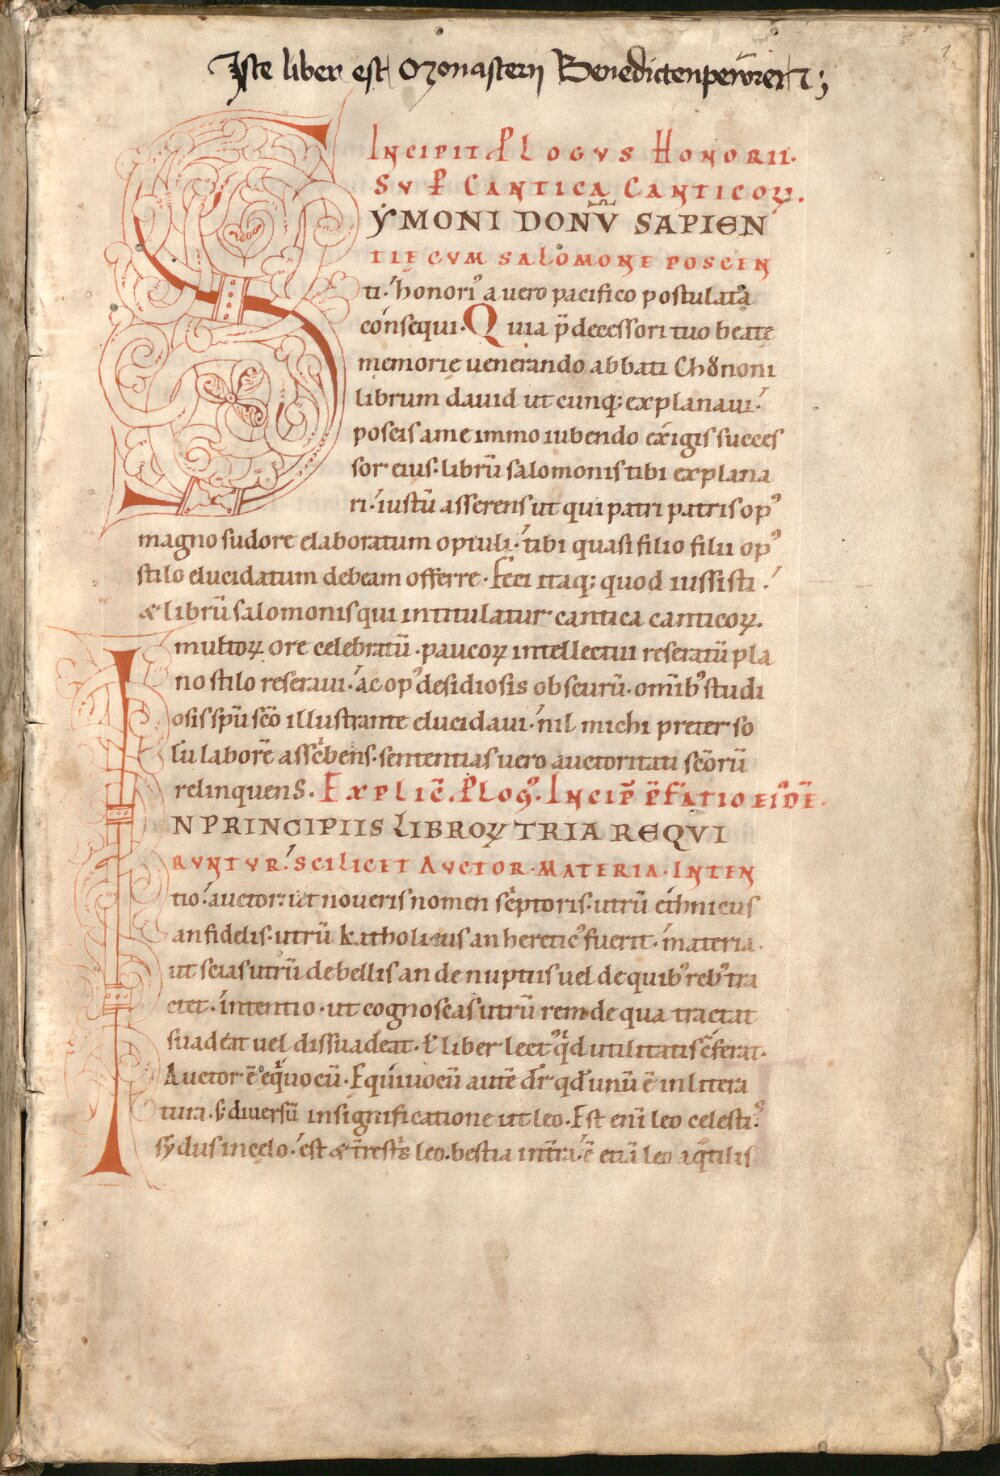 Iste liber est Monasterii Benedictenpewren ꝛc;
1
INCIPIT ꝒLOGVS HONORII.
SVꝑ CANTICA CANTICOꝜ.
SẎMONI DONV̄ SAPIEN
TIE CVM SALOMONE POSCEN
ti. honoriꝰ a uero pacifico postulata
consequi. Quia p̄decessori tuo beate
memorie uenerando abbati Chononi
librum dauid ut cunq; explanaui.
poscis a me immo iubendo exigis succes
sor eius. librū salomonis tibi explana
ri. iustū asserens ut qui patri patris opꝰ
magno sudore elaboratum optuli. tibi quasi filio filii opꝰ
stilo elucidatum debeam offerre. Feci itaq; quod iussisti.
& librū salomonis qui intitulatur cantica canticoꝝ.
multoꝝ ore celebratū. paucoꝝ intellectui reseratū pla
no stilo reseraui. ac opꝰ desidiosis obscurū. omībꝰ studi
osis spū scō illustrante elucidaui. nil michi preter so
lū laborē asscͥbens. sententias uero auctoritati scōrū
relinquens. EXPLIC̄. ꝒLOGꝰ. INCIP̄ P̄FATIO EIꝰDĒ.
IN PRINCIPIIS LIBROꝜ TRIA REQVI
RVNTVR. SCILICET AVCTOR. MATERIA. INTEN
tio. auctor. ut noueris nomen scͥptoris. utrū ethnicus
an fidelis. utrū katholicus an hereticꝰ fuerit. materia.
ut scias utrū de bellis an de nuptiis uel de quibꝰ rebꝰ tra
ctet. intentio. ut cognoscas utrū rem de qua tractat
suadeat uel dissuadeat. & liber lectꝰ qͥd utilitatis cͦferat.
Auctor ē eqͥuocū. Equiuocū autē dr̄ qd̓ unū ē in littera
tura. s; diuersū in significatione ut leo. Est eni leo celestis
sydus in celo. est & t̄rest̓s leo. bestia in t̄ra. ē etiā leo aqͣtilis